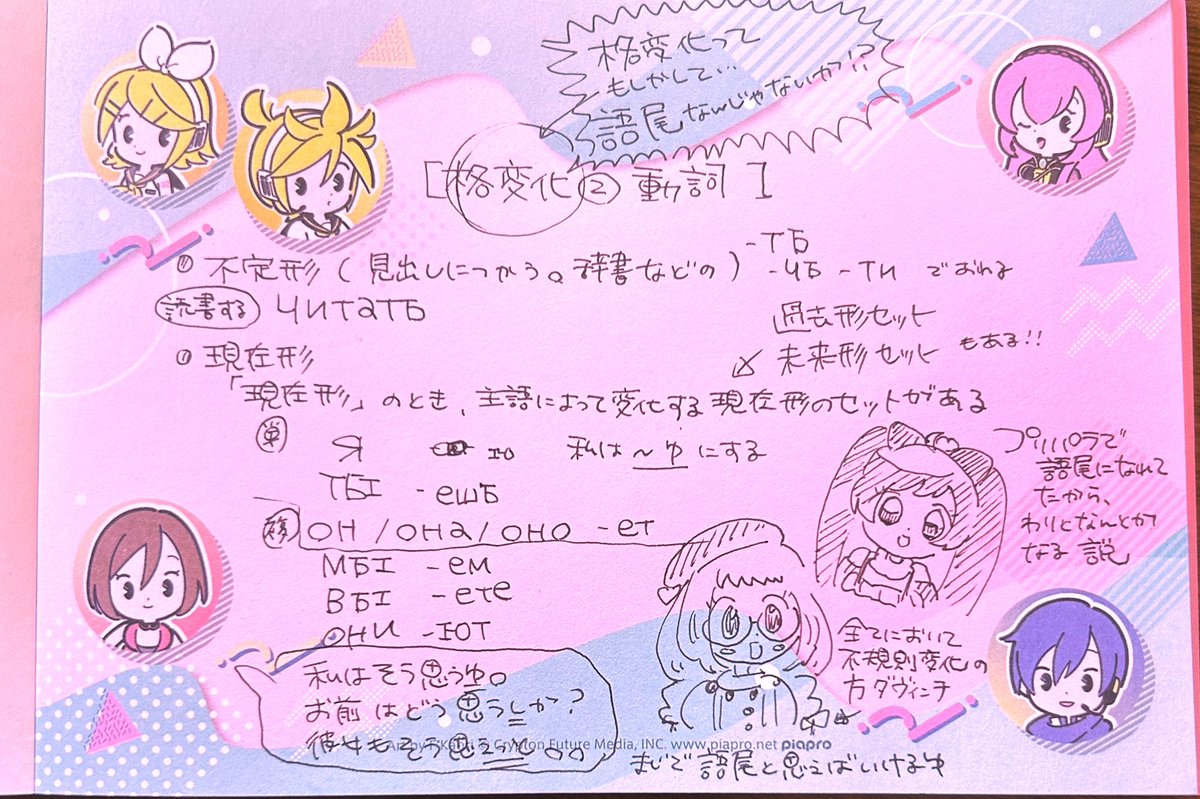 格変化って
もしかして…
語尾なんじゃないか!?
[格変化② 動詞]
① 不定形(見出しにつかう。辞書などの) -ть
-чь -ти でおわる
読書する читать
① 現在形
過去形セット
未来形セット もある!!
「現在形」のとき、主語によって変化する現在形のセットがある
単 я ю 私は~ゆにする
ты -ешь
он/она/оно -ет
мы -ем
вы -ете
они -ют
プリパラで
語尾になれて
たから、
わりとなんとか
なる 説
全てにおいて
不規則変化の
方 ダヴィンチ
私はそう思うゆ。
お前はどう思うしか?
彼女もそう思うっと。。
Crypton Future Media, INC. www.piapro.net piapro
まじで語尾と思えばいけるゆ